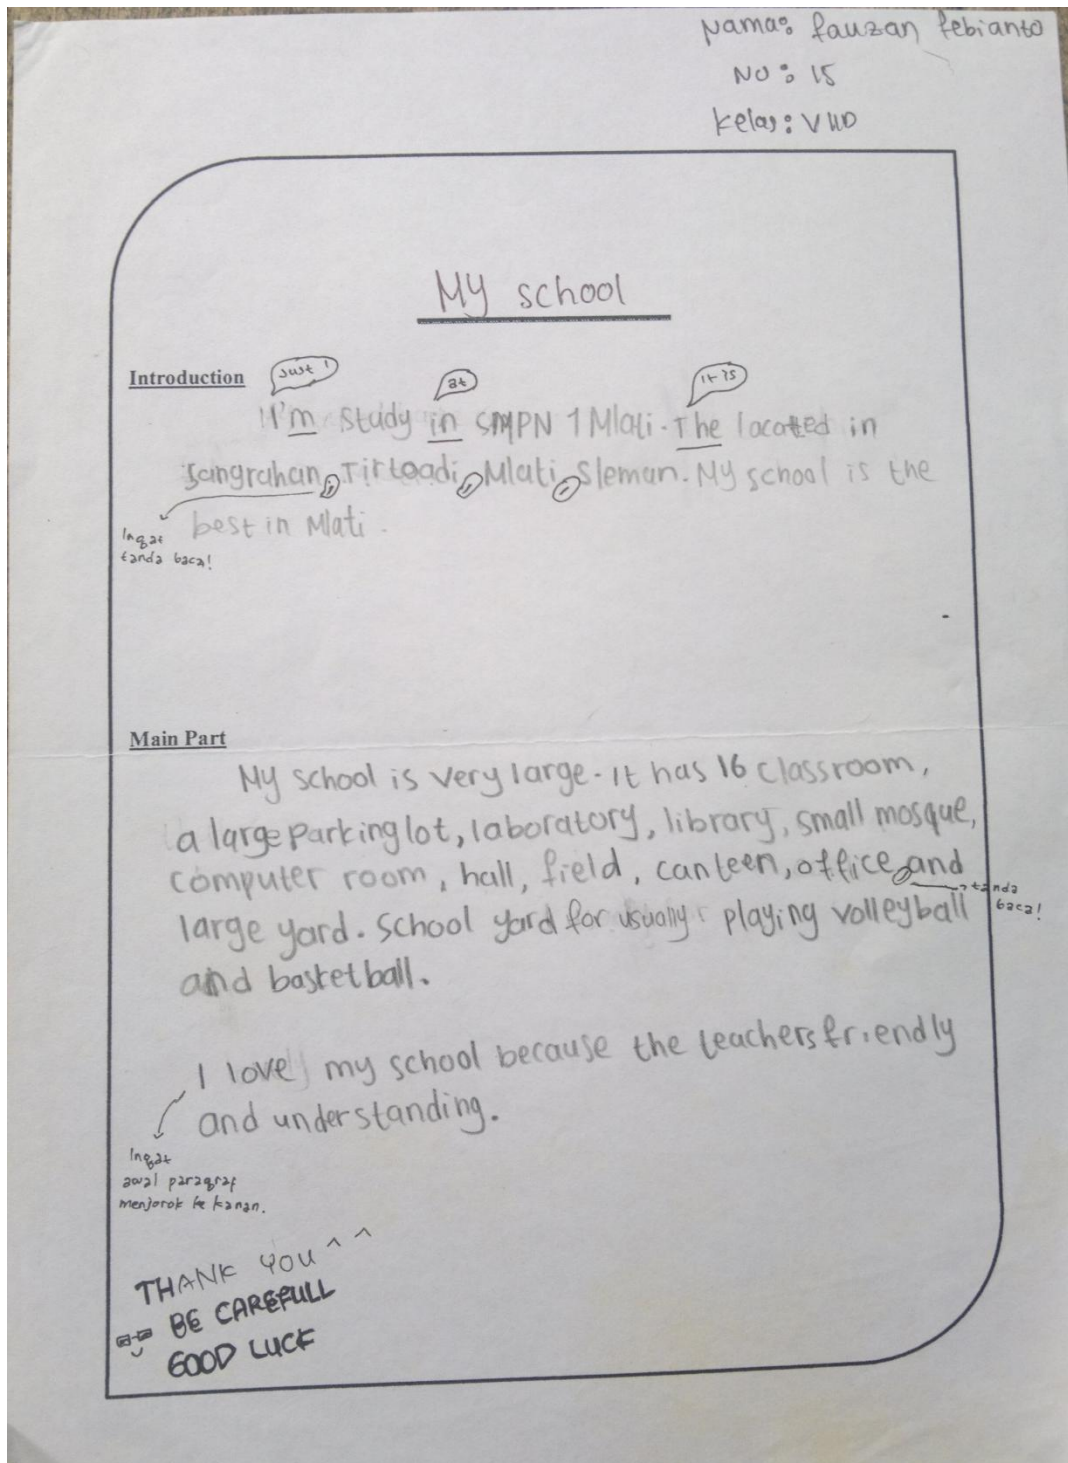 Nama: fauzan febianto
No: 15
Kelas: VIID
My school
Introduction
Just I
at
It is
I'm study in SMPN 1 Mlati. The located in
Sangrahan, Tirtoadi, Mlati, Sleman. My school is the
best in Mlati.
Ingat
tanda baca!
Main Part
My school is very large. It has 16 classroom,
a large parking lot, laboratory, library, small mosque,
computer room, hall, field, canteen, office, and
tanda
baca!
large yard. School yard for usually playing volleyball
and basketball.
I love my school because the teachers friendly
and understanding.
Ingat
awal paragraf
menjorok ke kanan.
THANK YOU ^ ^
BE CAREFULL
GOOD LUCK